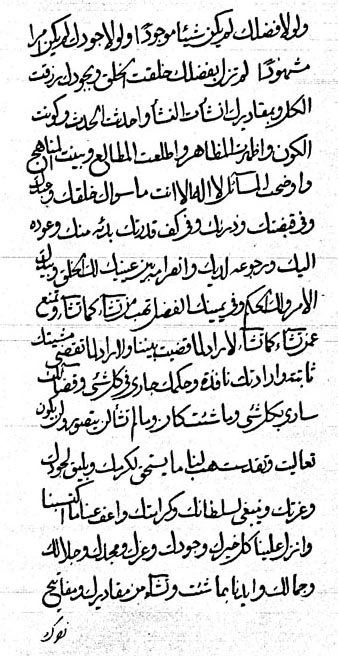 ولولا فضلك لم يكن شيئا موجودا ولولا جودك لم يكن امرا
مشهودا لم تزل بفضلك خلقت الخلق وبجودك رزقت
الكل وبمقاديرك انشات النشأ واحدثت الحدث وكونت
الكون واظهرت المظاهر واطلعت المطالع وبينت المناهج
واوضحت المسائل لا اله الا انت ما سواك خلقك
وفي قبضتك وذرئك وفي كف قدرتك بدئه منك وعوده
اليك ورجوعه لديك وانفراره بين عينيك لك الخلق
الامر ولك الحكم وفي يمينك الفضل تهب من تشاء كما تشاء وتمنع
عمن تشاء كما تشاء لا راد لما قضيت بيننا ولا راد لما تقضي مشيتك
ثابتة وارادتك نافذة وحكمك جاري في كل شئ وقضائك
ساري بكل شئ وما شئت كان وما لم تشأ لن يتصور ولن يكون
تعاليت وتقدست هب لنا ما ينبغي لكرمك ويليق لجودك
وعزتك وينبغي لسلطانك وكرامتك واعف عنا ما اكتسبنا
وانزل علينا كل خيرك وجودك وعزك ومجدك وجلالك
وجمالك وايدنا بما شئت وتشاء من مقاديرك ومفاتيح